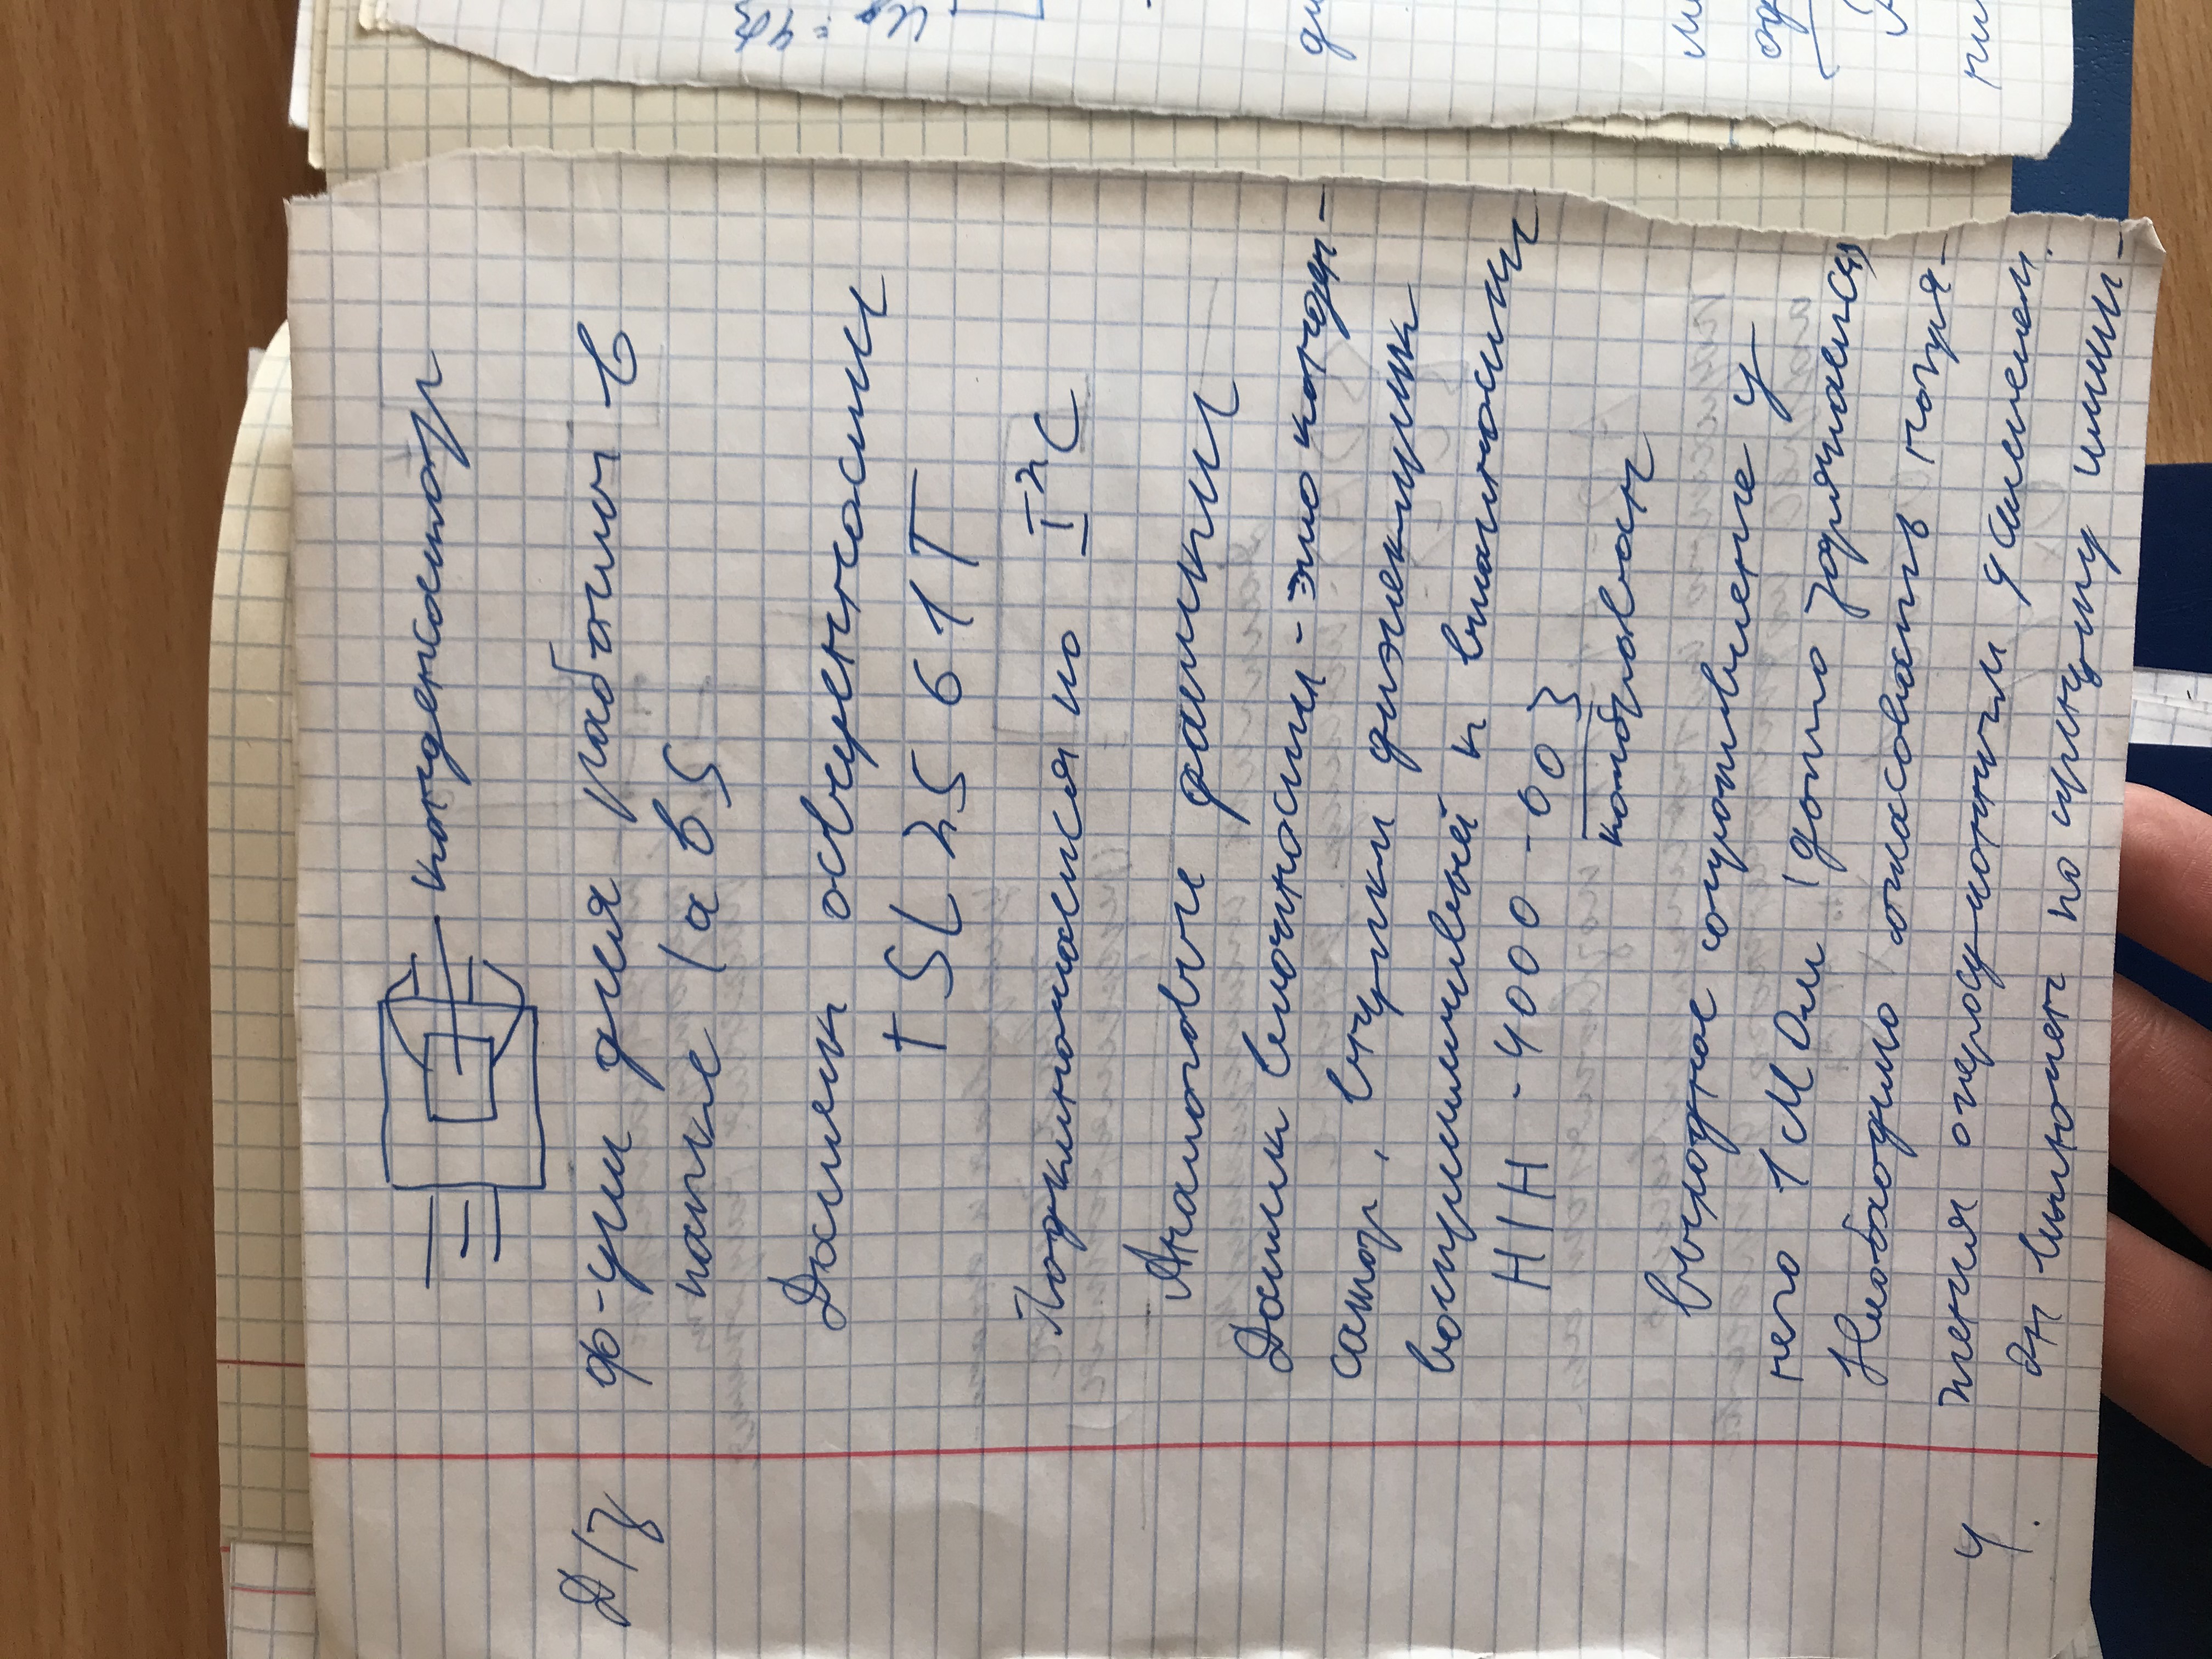 конденсатор
Д/з ф-ции для работы в
папке lab5
Датчик освещенности
TSL2561T
Подключается по I²C
Аналоговые датчики
Датчик влажности - это конден-
сатор, внутри диэлектрик
восприимчивый к влажности
HIH - 4000 - 003
калиброван
Выходное сопротивление у
него 1 МОм (долго заряжается)
Необходимо согласовать напря-
жения операционным усилителем.
4. Он включен по принципу